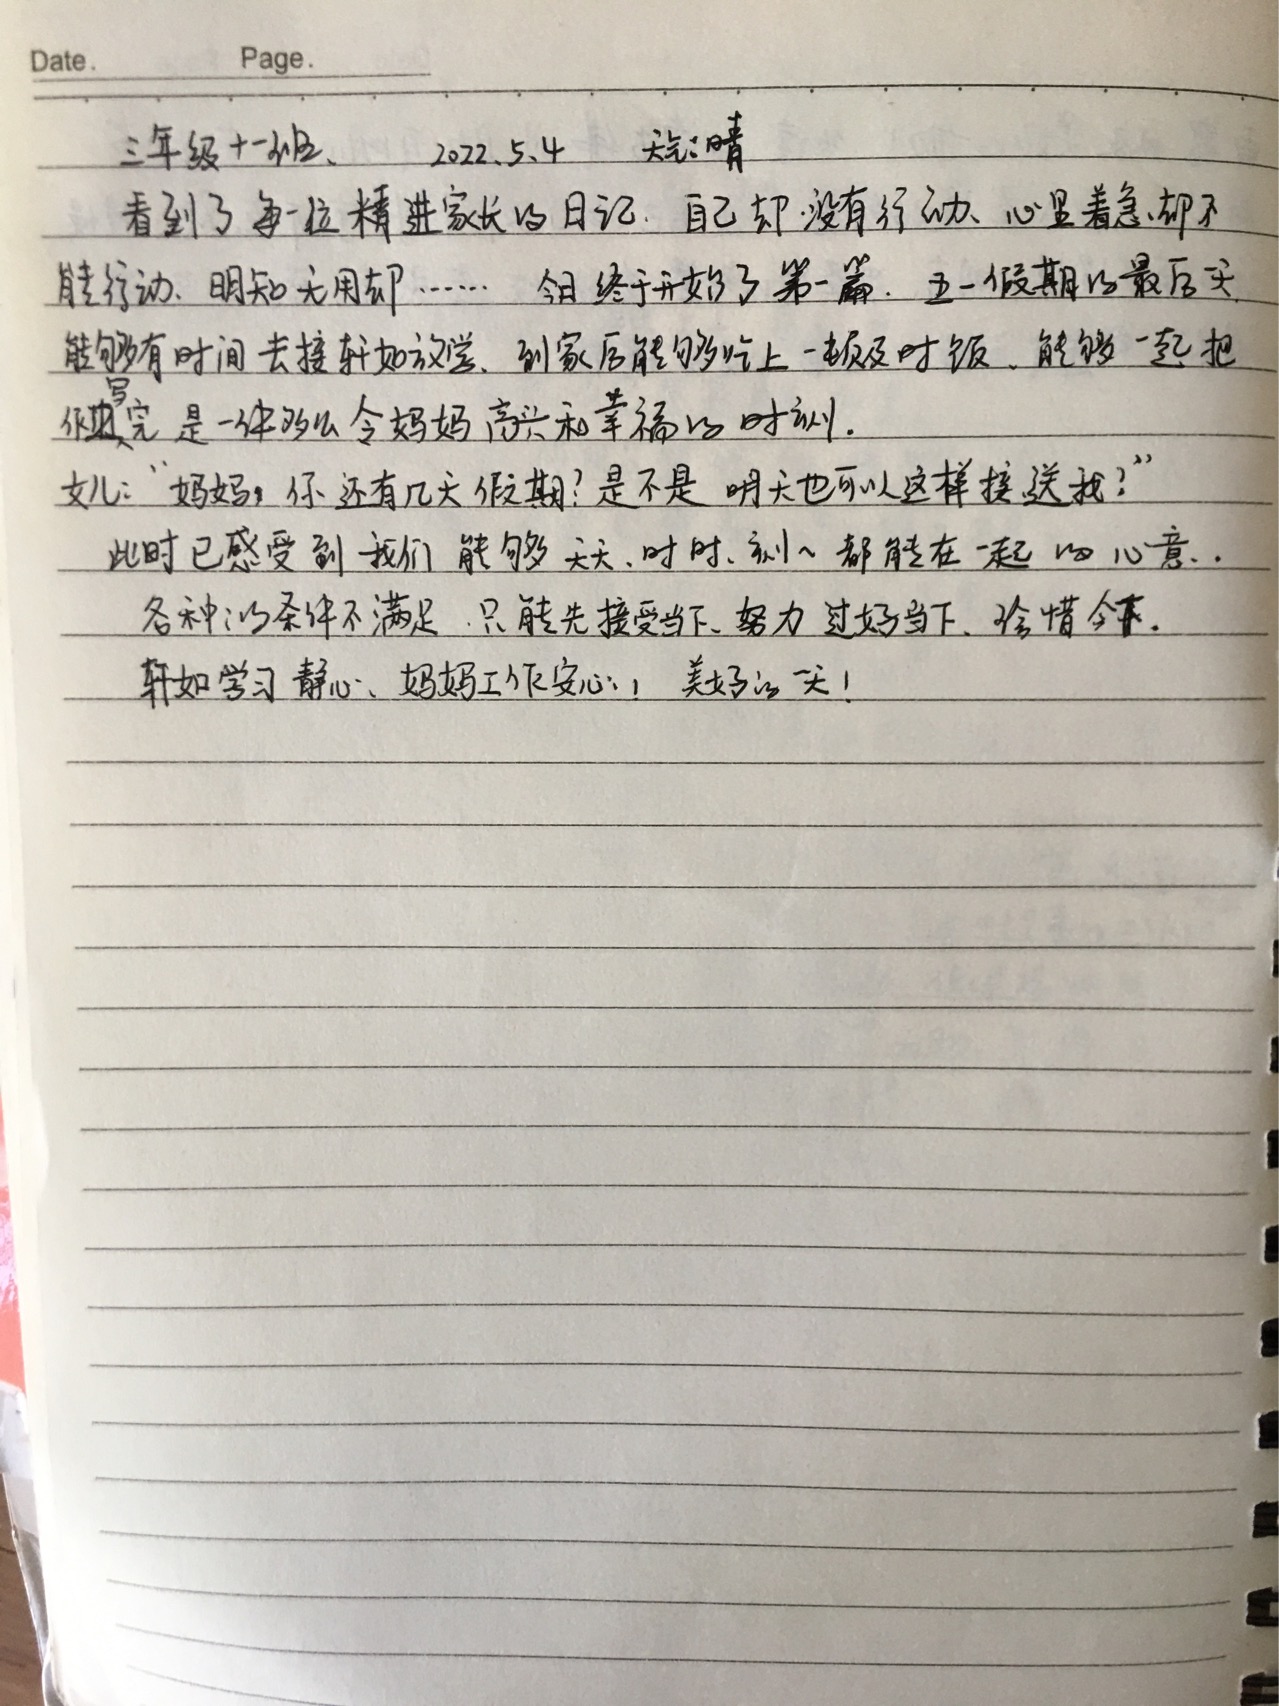 Date. Page.
三年级十一班、 2022.5.4 天气:晴
看到了每一位精进家长的日记. 自己却没有行动、心里着急、却不
能行动、明知无用却…… 今日终于开始了第一篇. 五一假期的最后一天
能够有时间去接轩如放学、到家后能够吃上一顿及时饭、能够一起把
作业写完 是一件多么令妈妈高兴和幸福的时刻.
女儿:“妈妈,你还有几天假期?是不是明天也可以这样接送我?”
此时已感受到我们能够天天、时时、刻~都能在一起的心意..
各种的条件不满足.只能先接受当下、努力过好当下、珍惜今天.
轩如学习静心、妈妈工作安心! 美好的一天!